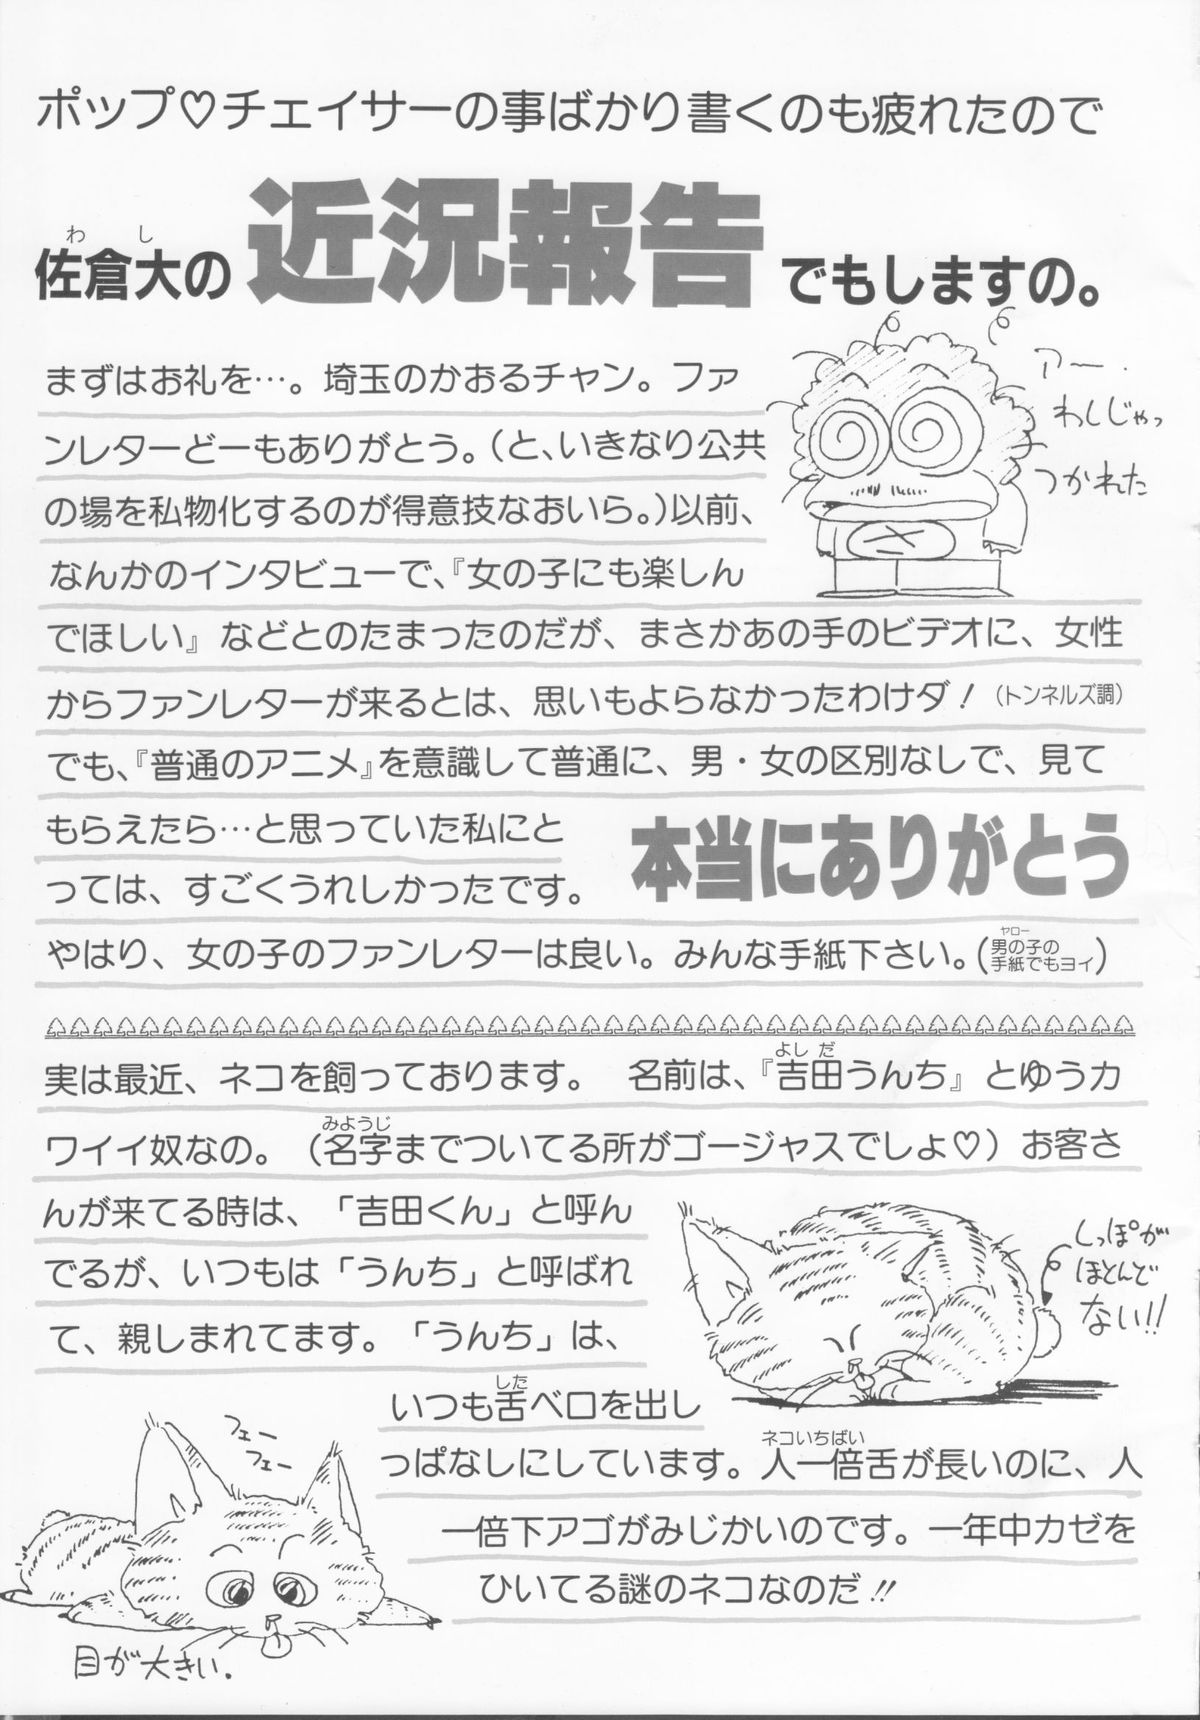 ポップ♡チェイサーの事ばかり書くのも疲れたので
わし
佐倉大の 近況報告 でもしますの。
まずはお礼を…。埼玉のかおるチャン。ファ
ンレターどーもありがとう。(と、いきなり公共
の場を私物化するのが得意技なおいら。)以前、
なんかのインタビューで、『女の子にも楽しん
でほしい』などとのたまったのだが、まさかあの手のビデオに、女性
からファンレターが来るとは、思いもよらなかったわけダ!(トンネルズ調)
でも、『普通のアニメ』を意識して普通に、男・女の区別なしで、見て
もらえたら…と思っていた私にと
っては、すごくうれしかったです。
本当にありがとう
やはり、女の子のファンレターは良い。みんな手紙下さい。(男の子の
ヤロー
手紙でもヨイ)
アー.
わしじゃっ
つかれた
よしだ
実は最近、ネコを飼っております。 名前は、『吉田うんち』とゆうカ
みようじ
ワイイ奴なの。(名字までついてる所がゴージャスでしょ♡)お客さ
んが来てる時は、「吉田くん」と呼ん
でるが、いつもは「うんち」と呼ばれ
て、親しまれてます。「うんち」は、
した
いつも舌ベロを出し
ネコいちばい
っぱなしにしています。人一倍舌が長いのに、人
一倍下アゴがみじかいのです。一年中カゼを
ひいてる謎のネコなのだ!!
しっぽが
ほとんど
ない!!
フェー
フェー
目が大きい.